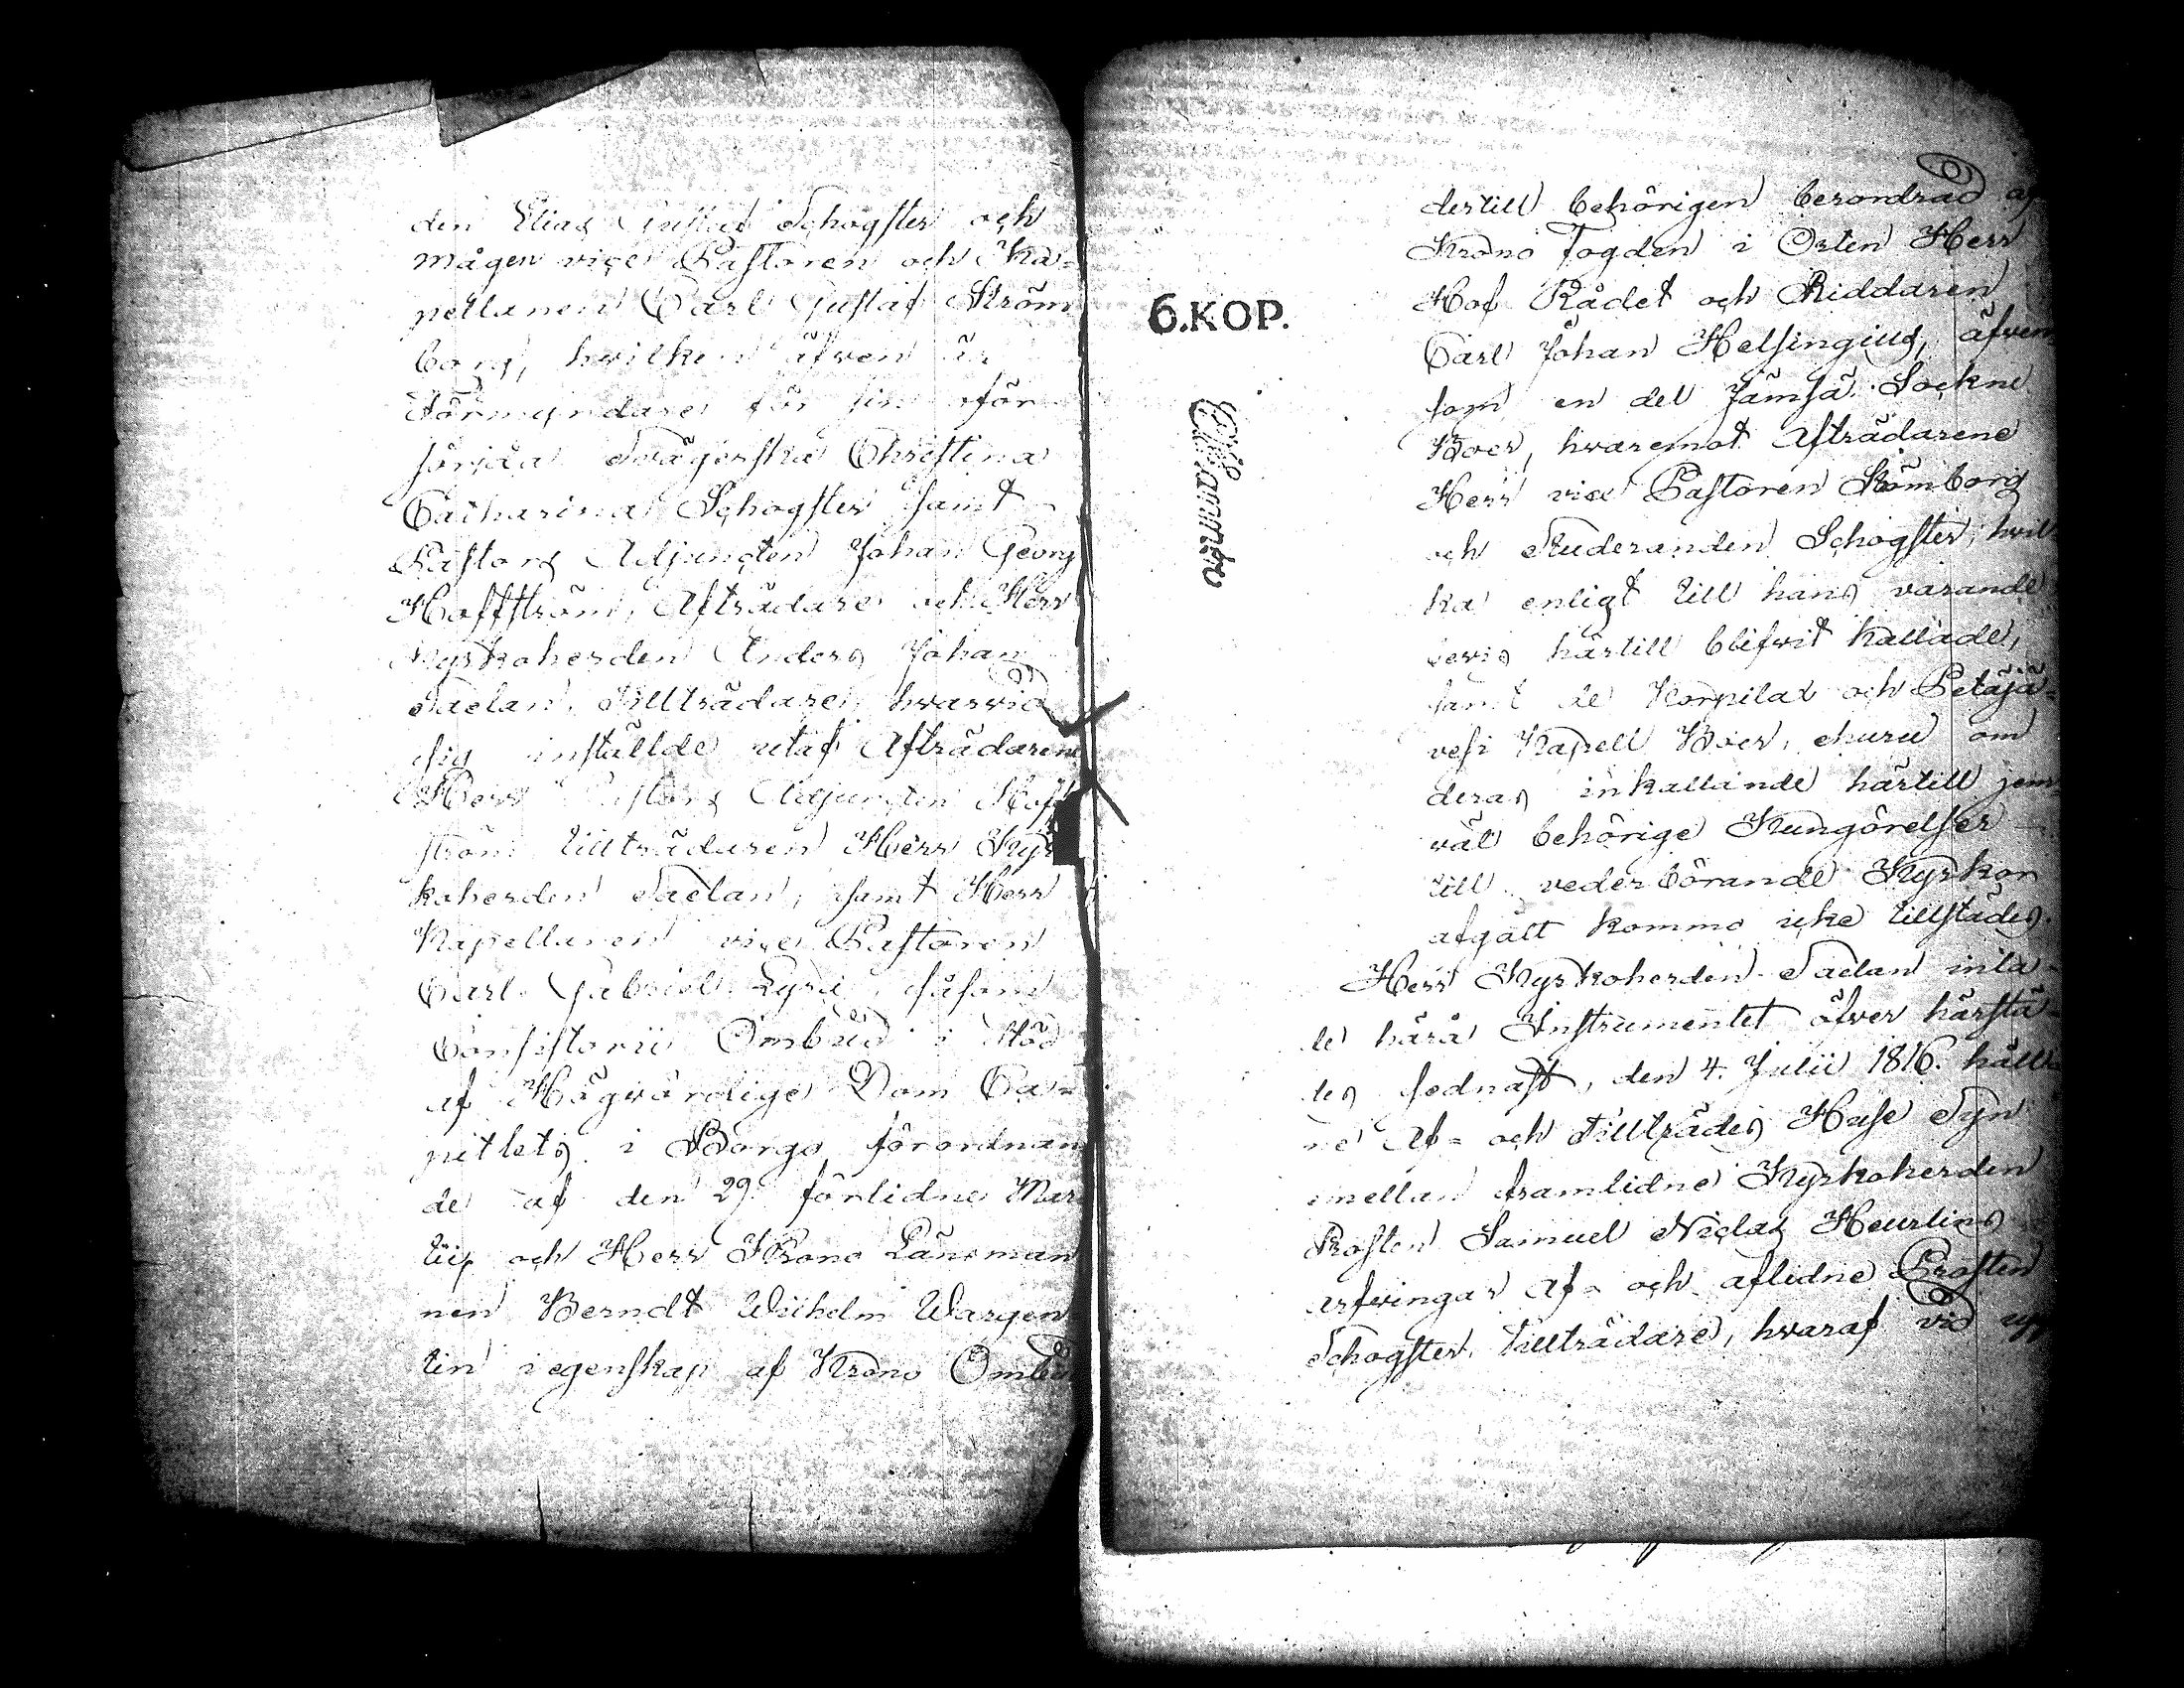 den Elias Gustaf Schogster och
mågen vice Pastoren och Ka=
pellanen Carl Gustaf Ström
borg, hvilken äfven är
Förmyndare för sin oför
sörjda Svägerska Christina
Catharina Schogster samt
Pastors Adjuncten Johan Georg
Hoffström, Afträdare och Herr
Kyrkoherden Anders Johan
Saelan, Tillträdare, hvarvid
sig inställde utaf Afträdarene
Herr Pastors Adjuncten Hoff
ström tillträdaren Herr Kyr
koherden Saelan, samt Herr
Kapellanen vice Pastoren
Carl Gabriel Lyra, såsom
Consistorii Ombud i stöd
af Högvördige Dom Ca=
pitlets i Borgo förordnan
de af den 29 förlidne Mar
tii, och Herr Krono Länsman
nen Berndt Wilhelm Wargen
tin i egenskap af Krono Ombud
6.KOP.
dertill behörigen beordrad af
Krono Fogden i Orten Herr
Hof Rådet och Riddaren
Carl Johan Helsingius, äfven
som en del Jämsä Sockne
Boer, hvaremot Afträdarene
Herr vice Pastoren Strömborg
och Studeranden Schogster, hvil
ka enligt till hans varande
bevis härtill blifvit kallade,
samt de Korpilax och Petäjä=
vesi Kapell Boer, ehuru om
deras inkallande härtill jem
väl behörige Kungörelser
till vederbörande Kyrkor
afgått kommo icke tillstädes.
Herr Kyrkoherden Saelan inla=
de härå Instrumentet öfver härstä=
des sednast, den 4. Julii 1816. håll
ne Af= och Tillträdes Huse Syn
emellan framlidne Kyrkoherden
Prosten Samuel Niclas Heurlins
arfvingar Af= och aflidne Prosten
Schogster, Tillträdare, hvaraf vid upp